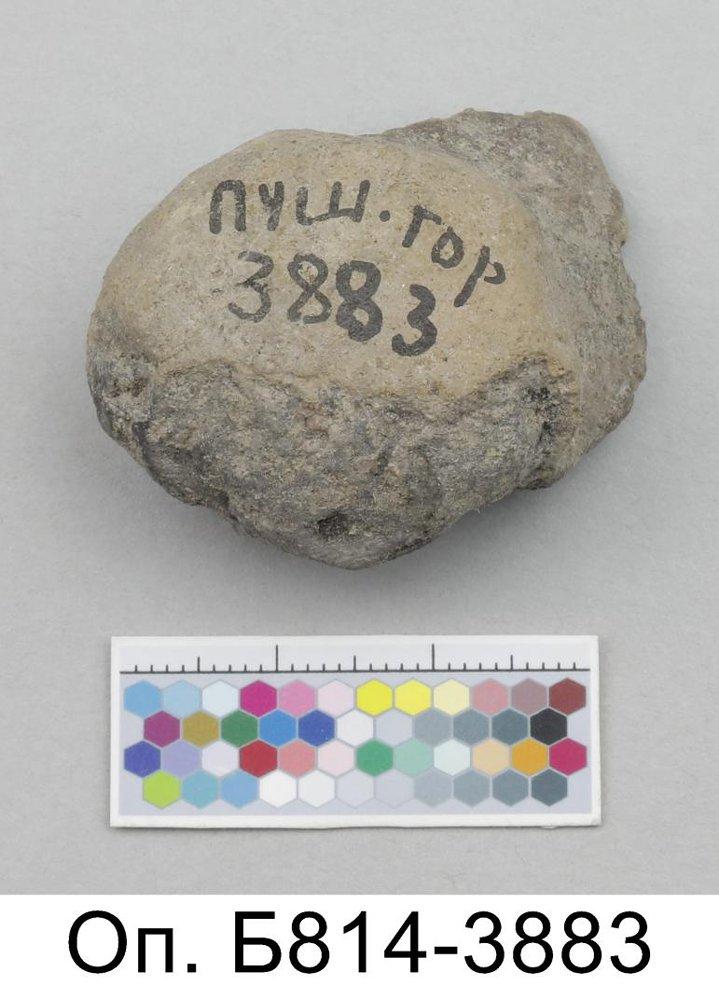 ПУШ. ГОР
3883
Оп. Б814-3883